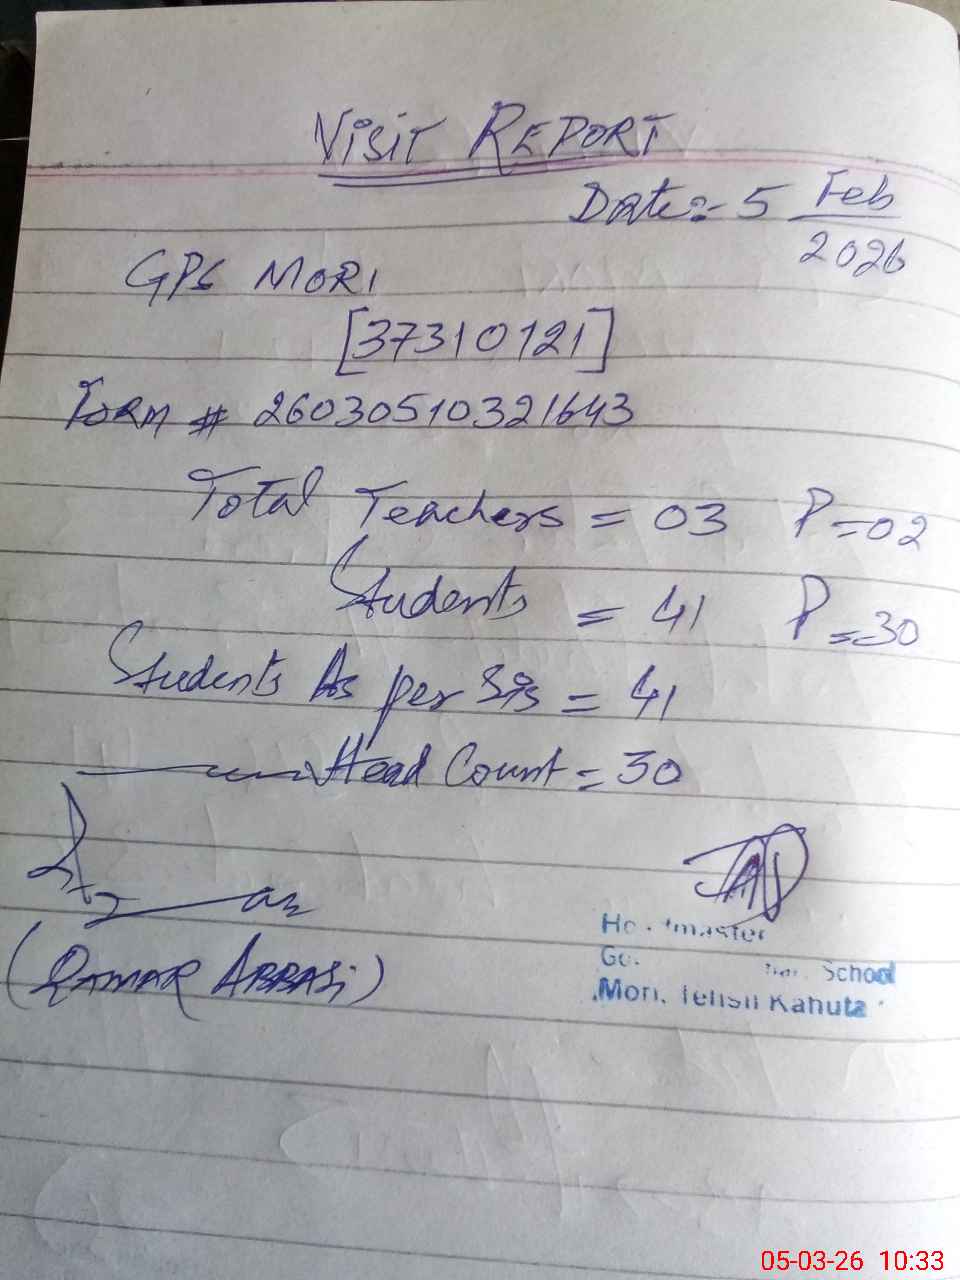 VISIT REPORT
Date:- 5 Feb
2026
GPS MORI
[37310121]
Form # 26030510321643
Total Teachers = 03 P=02
Students = 41 P=30
Students As per SIS = 41
Head Count = 30
(QAMAR ABBASI)
School
Mori, Tehsil Kahuta
05-03-26 10:33